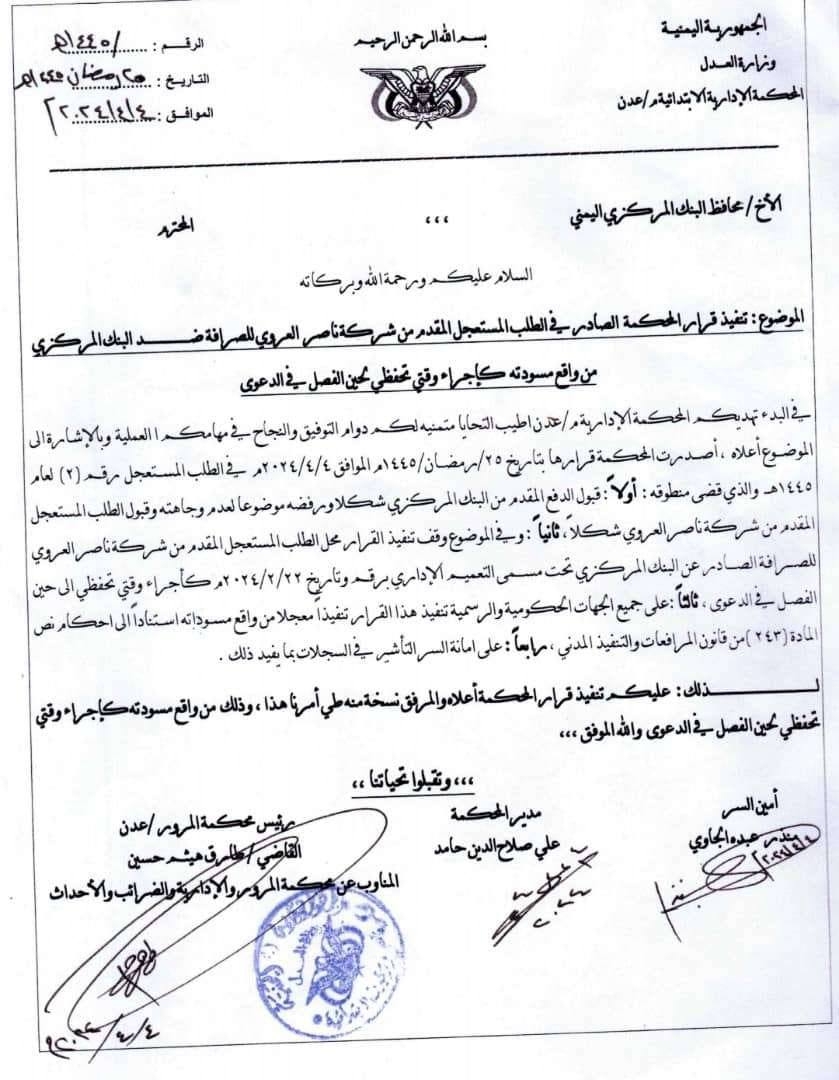 الجمهورية اليمنية
وزارة العدل
المحكمة الإدارية الابتدائية م/عدن
بسم الله الرحمن الرحيم
الرقم : ....../١٤٤٥هـ
التاريخ : ٢٥ رمضان ١٤٤٥هـ
الموافق : ٢٠٢٤/٤/٤م
الأخ / محافظ البنك المركزي اليمني ،،، المحترم
السلام عليكم ورحمة الله وبركاته
الموضوع : تنفيذ قرار المحكمة الصادر في الطلب المستعجل المقدم من شركة ناصر العروي للصرافة ضد البنك المركزي
من واقع مسودته كإجراء وقتي تحفظي لحين الفصل في الدعوى
في البدء تهديكم المحكمة الإدارية م/عدن اطيب التحايا متمنيه لكم دوام التوفيق والنجاح في مهامكم العملية وبالإشارة الى
الموضوع أعلاه ، أصدرت المحكمة قرارها بتاريخ ٢٥/رمضان/١٤٤٥م الموافق ٢٠٢٤/٤/٤م في الطلب المستعجل رقم (٢) لعام
١٤٤٥هـ والذي قضى منطوقه : أولاً : قبول الدفع المقدم من البنك المركزي شكلا ورفضه موضوعا لعدم وجاهته وقبول الطلب المستعجل
المقدم من شركة ناصر العروي شكلاً، ثانياً : وفي الموضوع وقف تنفيذ القرار محل الطلب المستعجل المقدم من شركة ناصر العروي
للصرافة الصادر عن البنك المركزي تحت مسمى التعميم الإداري برقم وتاريخ ٢٠٢٤/٢/٢٢م كأجراء وقتي تحفظي الى حين
الفصل في الدعوى ، ثالثاً : على جميع الجهات الحكومية والرسمية تنفيذ هذا القرار تنفيذاً معجلا من واقع مسوداته استناداً الى احكام نص
المادة (٢٤٣) من قانون المرافعات والتنفيذ المدني ، رابعاً : على امانة السر التأشير في السجلات بما يفيد ذلك .
لـــذلك : عليكم تنفيذ قرار المحكمة أعلاه والمرفق نسخة منه طي أمرنا هذا ، وذلك من واقع مسودته كإجراء وقتي
تحفظي لحين الفصل في الدعوى والله الموفق ،،،
،،، وتقبلوا تحياتنا ،،
أمين السر
منذر عبده الجاوي
٢٠٢٤/٤/٤
مدير المحكمة
علي صلاح الدين حامد
رئيس محكمة المرور /عدن
القاضي / طارق هيثم حسين
المناوب عن محكمة المرور والإدارية والضرائب والأحداث
٢٠٢٤/٤/٤م